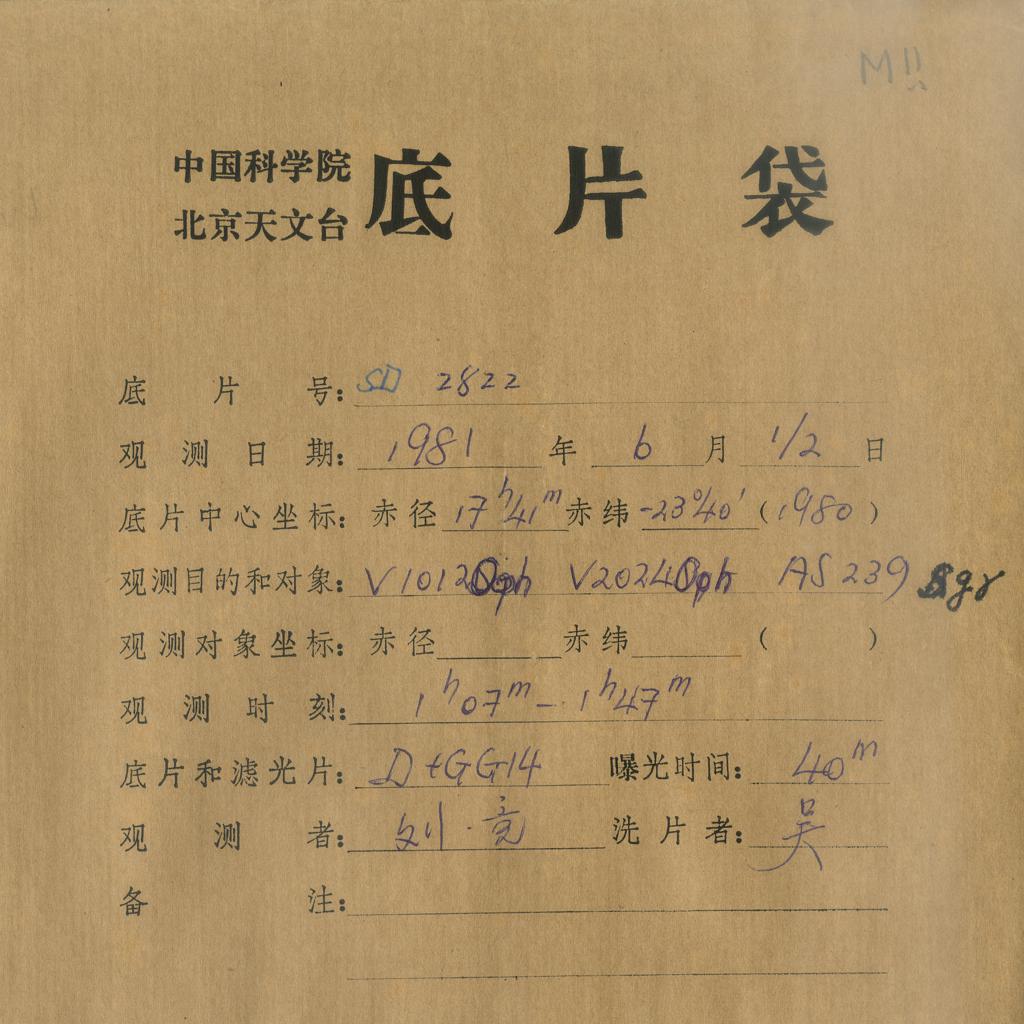 M11
中国科学院
北京天文台 底片袋
底片号: SD 2822
观测日期: 1981 年 6 月 1/2 日
底片中心坐标: 赤径 17h41m 赤纬 -23°40′ (1980)
观测目的和对象: V1012Oph V2024Oph AS239 Sgr
观测对象坐标: 赤径 赤纬 ( )
观测时刻: 1h07m - 1h47m
底片和滤光片: D+GG14 曝光时间: 40m
观测者: 刘·竞 洗片者: 吴
备注: